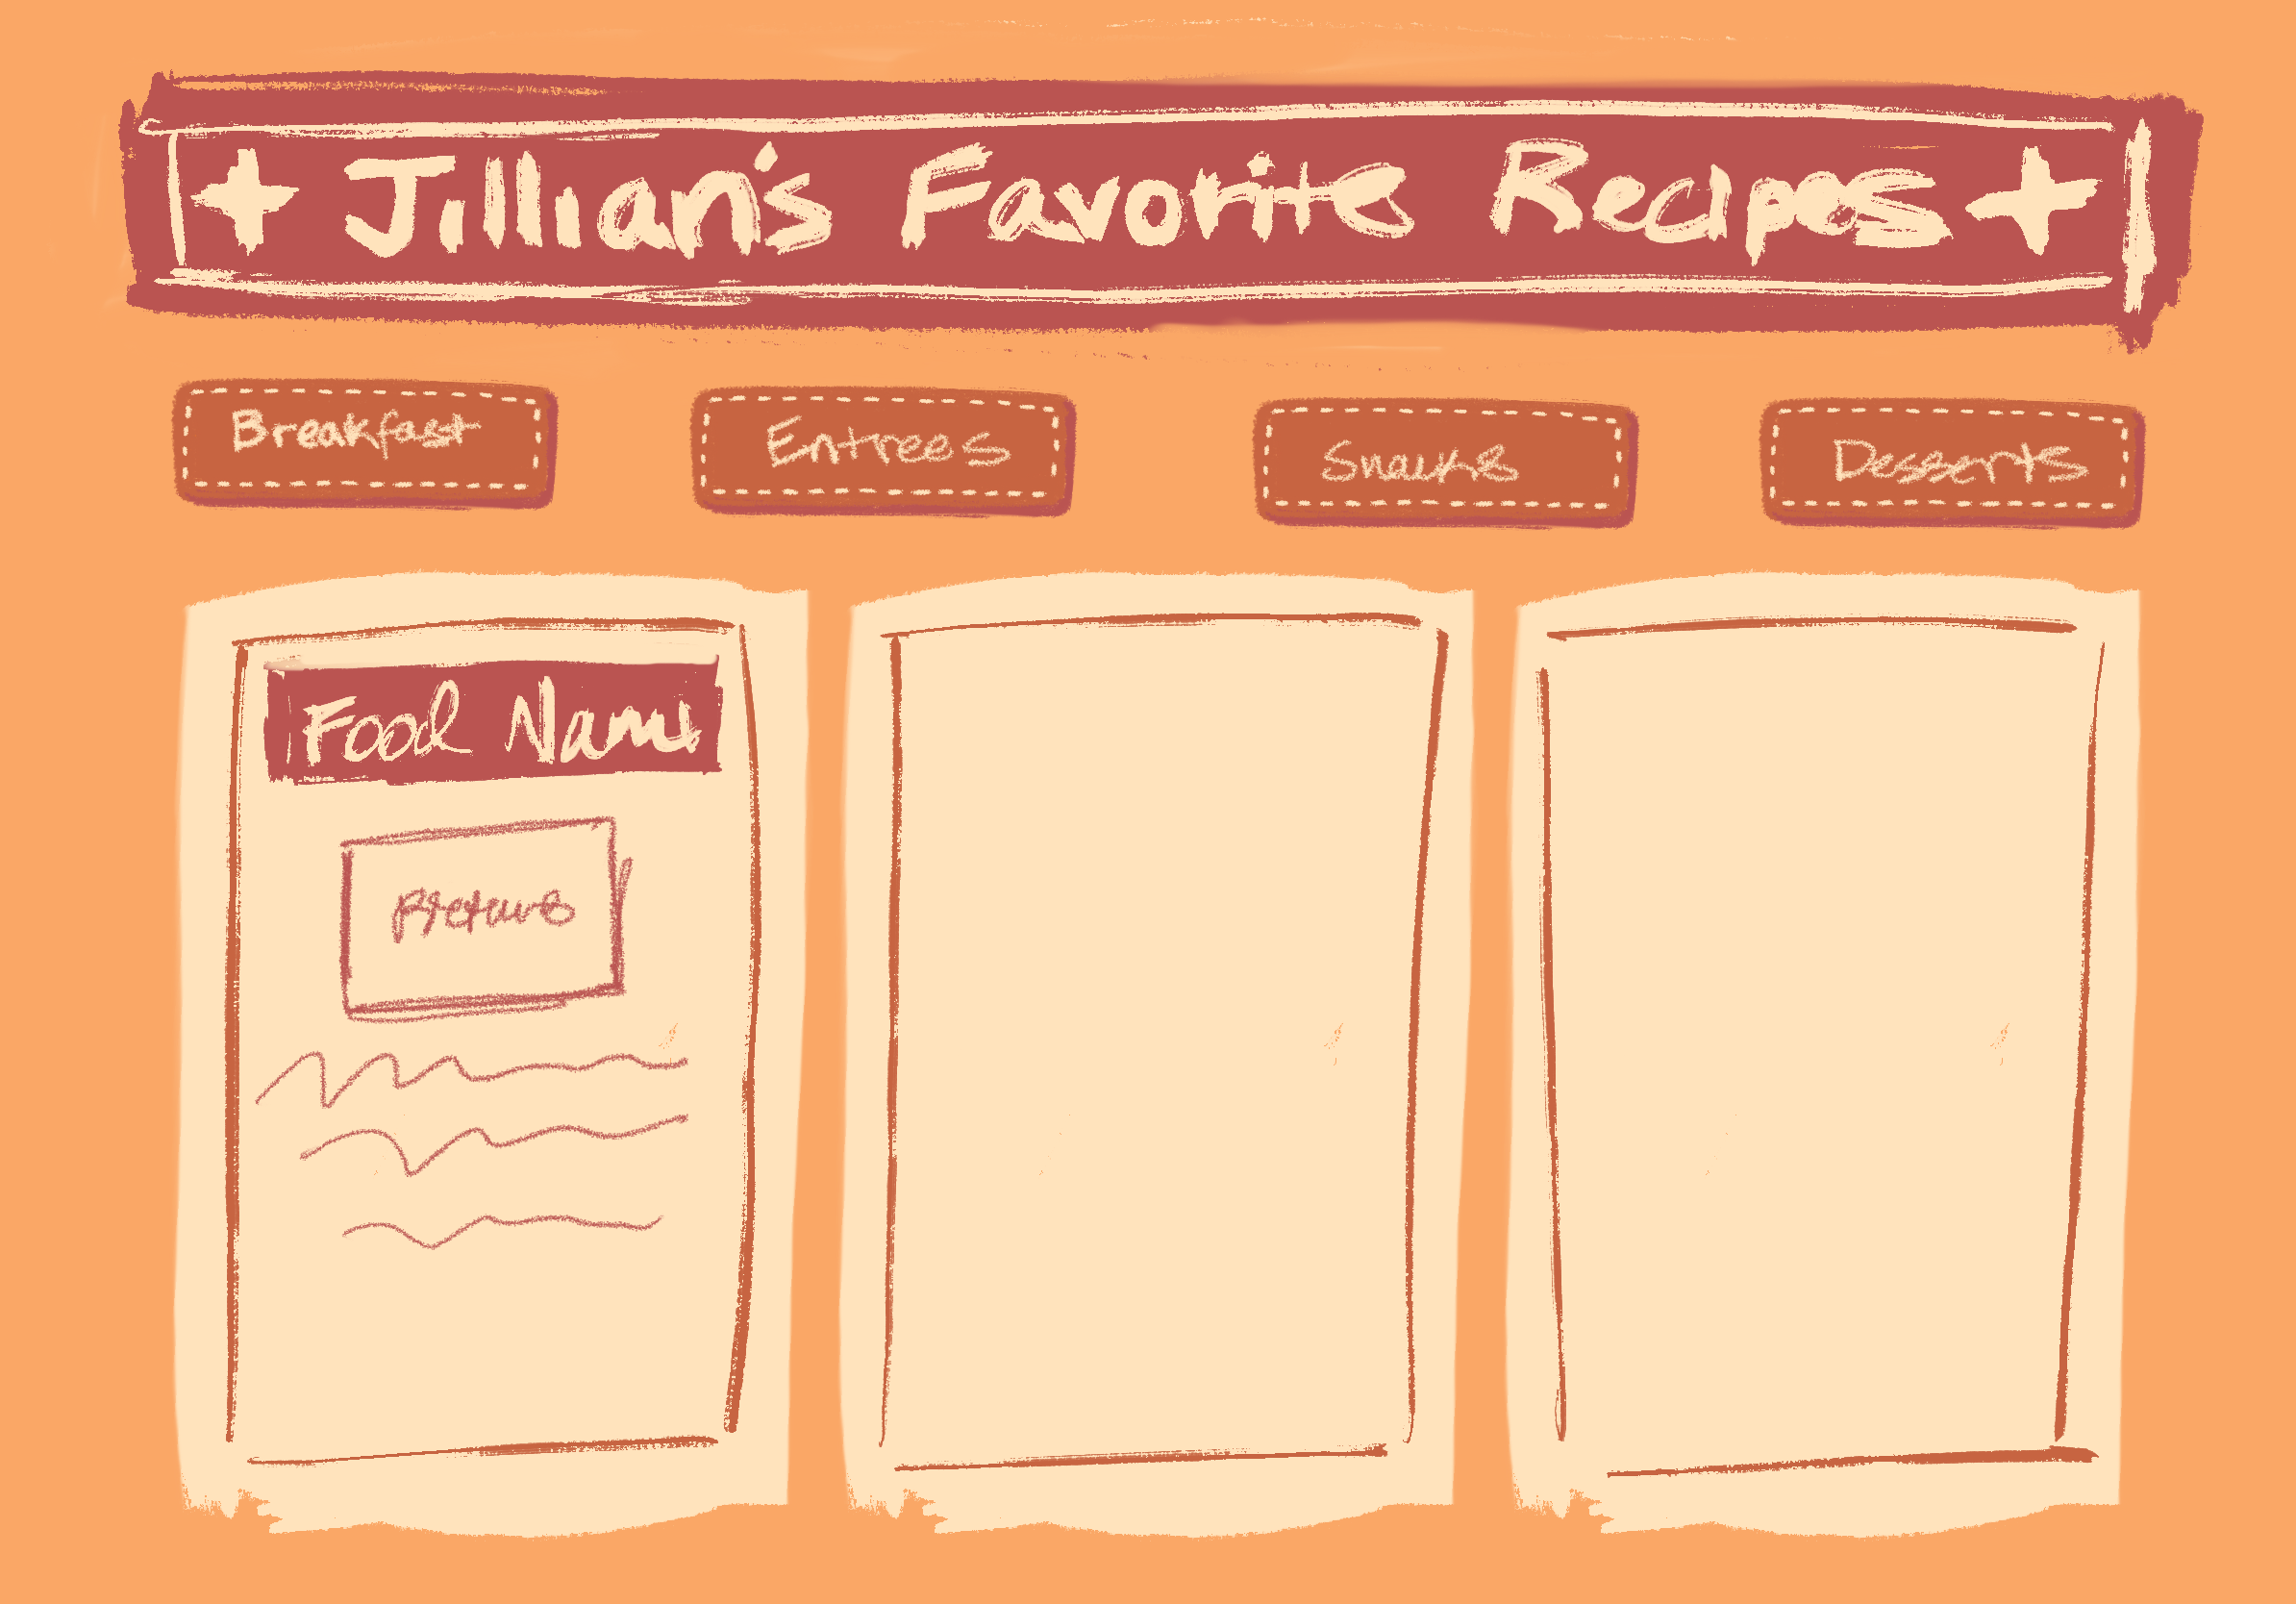 + Jillian's Favorite Recipes +
Breakfast
Entrees
Snacks
Desserts
Food Name
Picture